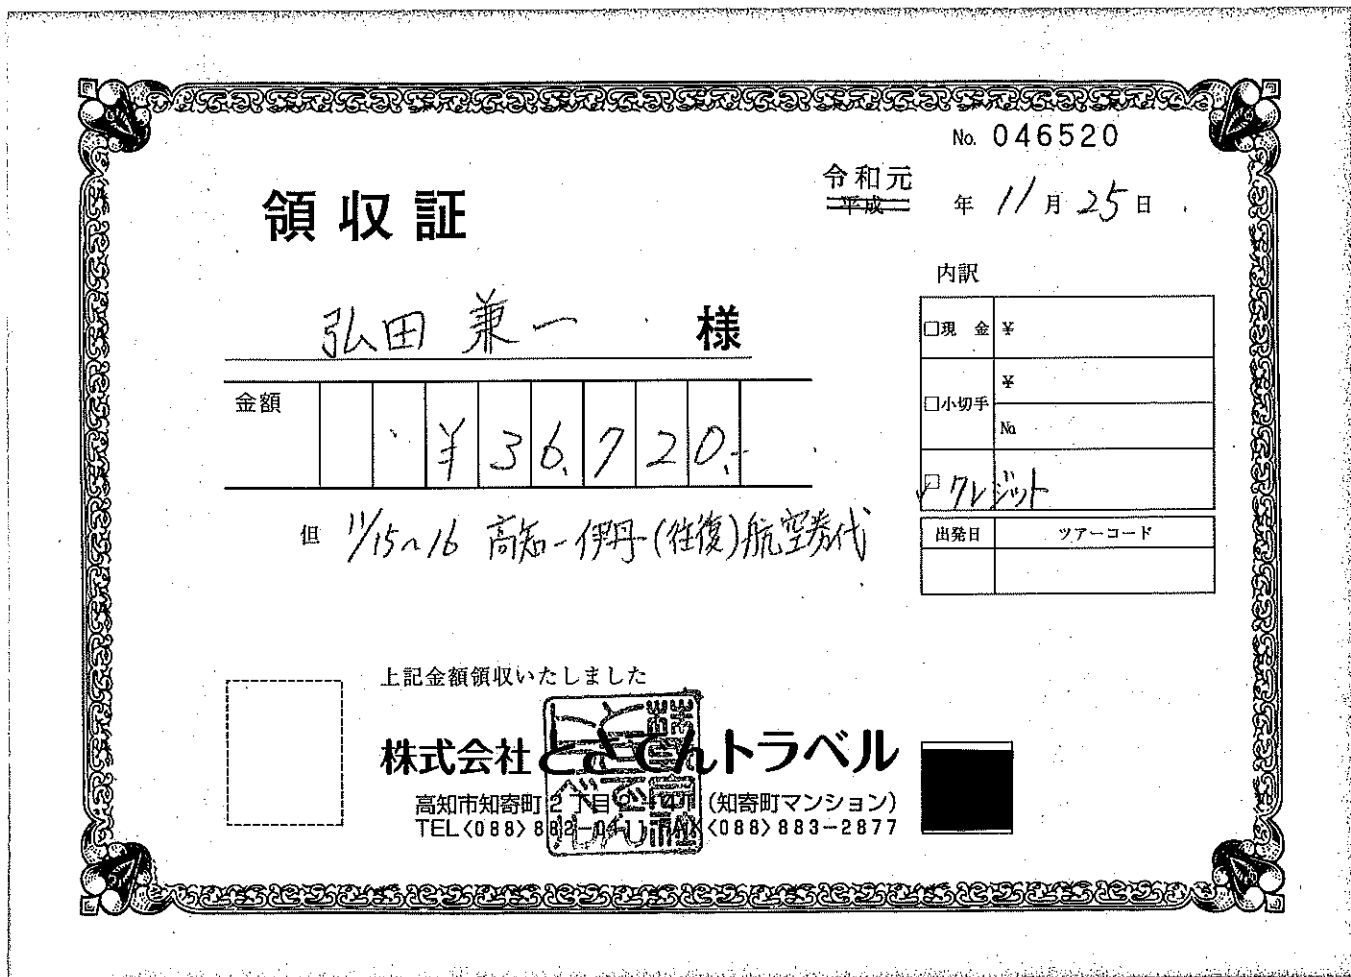 No. 046520
令和元
平成 年 11月25日
領収証
弘田 兼一 様
金額 ¥36,720.-
但 11/15~16 高知-伊丹-(往復)航空券代
内訳
□現 金 ¥
□小切手 ¥
No.
□クレジット
出発日 ツアーコード
上記金額領収いたしました
株式会社とさでんトラベル
高知市知寄町2丁目 (知寄町マンション)
TEL<088>882- FAX<088>883-2877